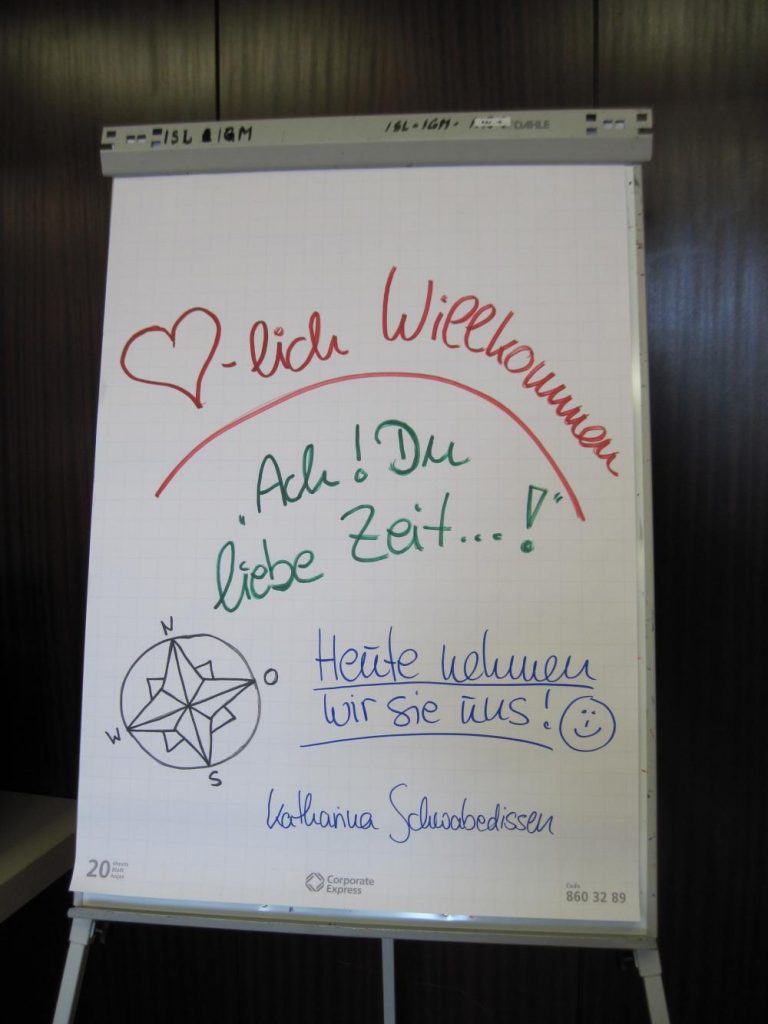 ISL & IGM
ISL-IGM- DAHLE
♥-lich Willkommen
„Ach! Du
liebe Zeit...!“
N
O
W
S
Heute nehmen
wir sie uns!
Katharina Schwabedissen
20 sheets
Blatt
Corporate
Express
Code
860 32 89